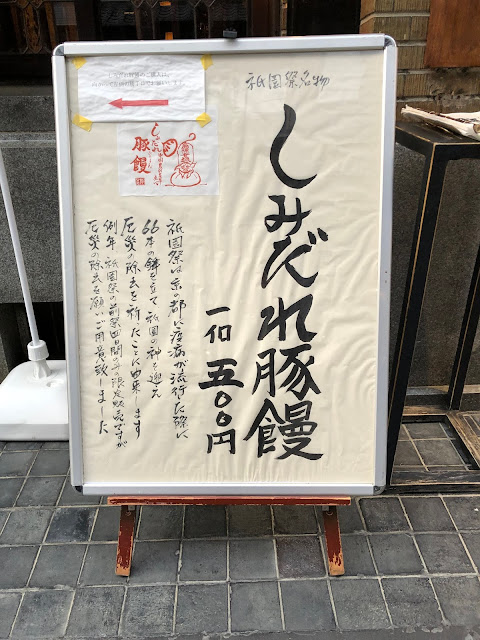 祇園祭名物
しみだれ豚饅
一個 五〇〇円
祇園祭は京の都に疫病が流行た際に
66本の鉾を立て 祇園の神を迎え
厄災の除去を祈たことに由来します
例年 祇園祭の前祭四日間のみの限定販売ですが
厄災の除去を願いご用意致しました
しみだれ
豚饅